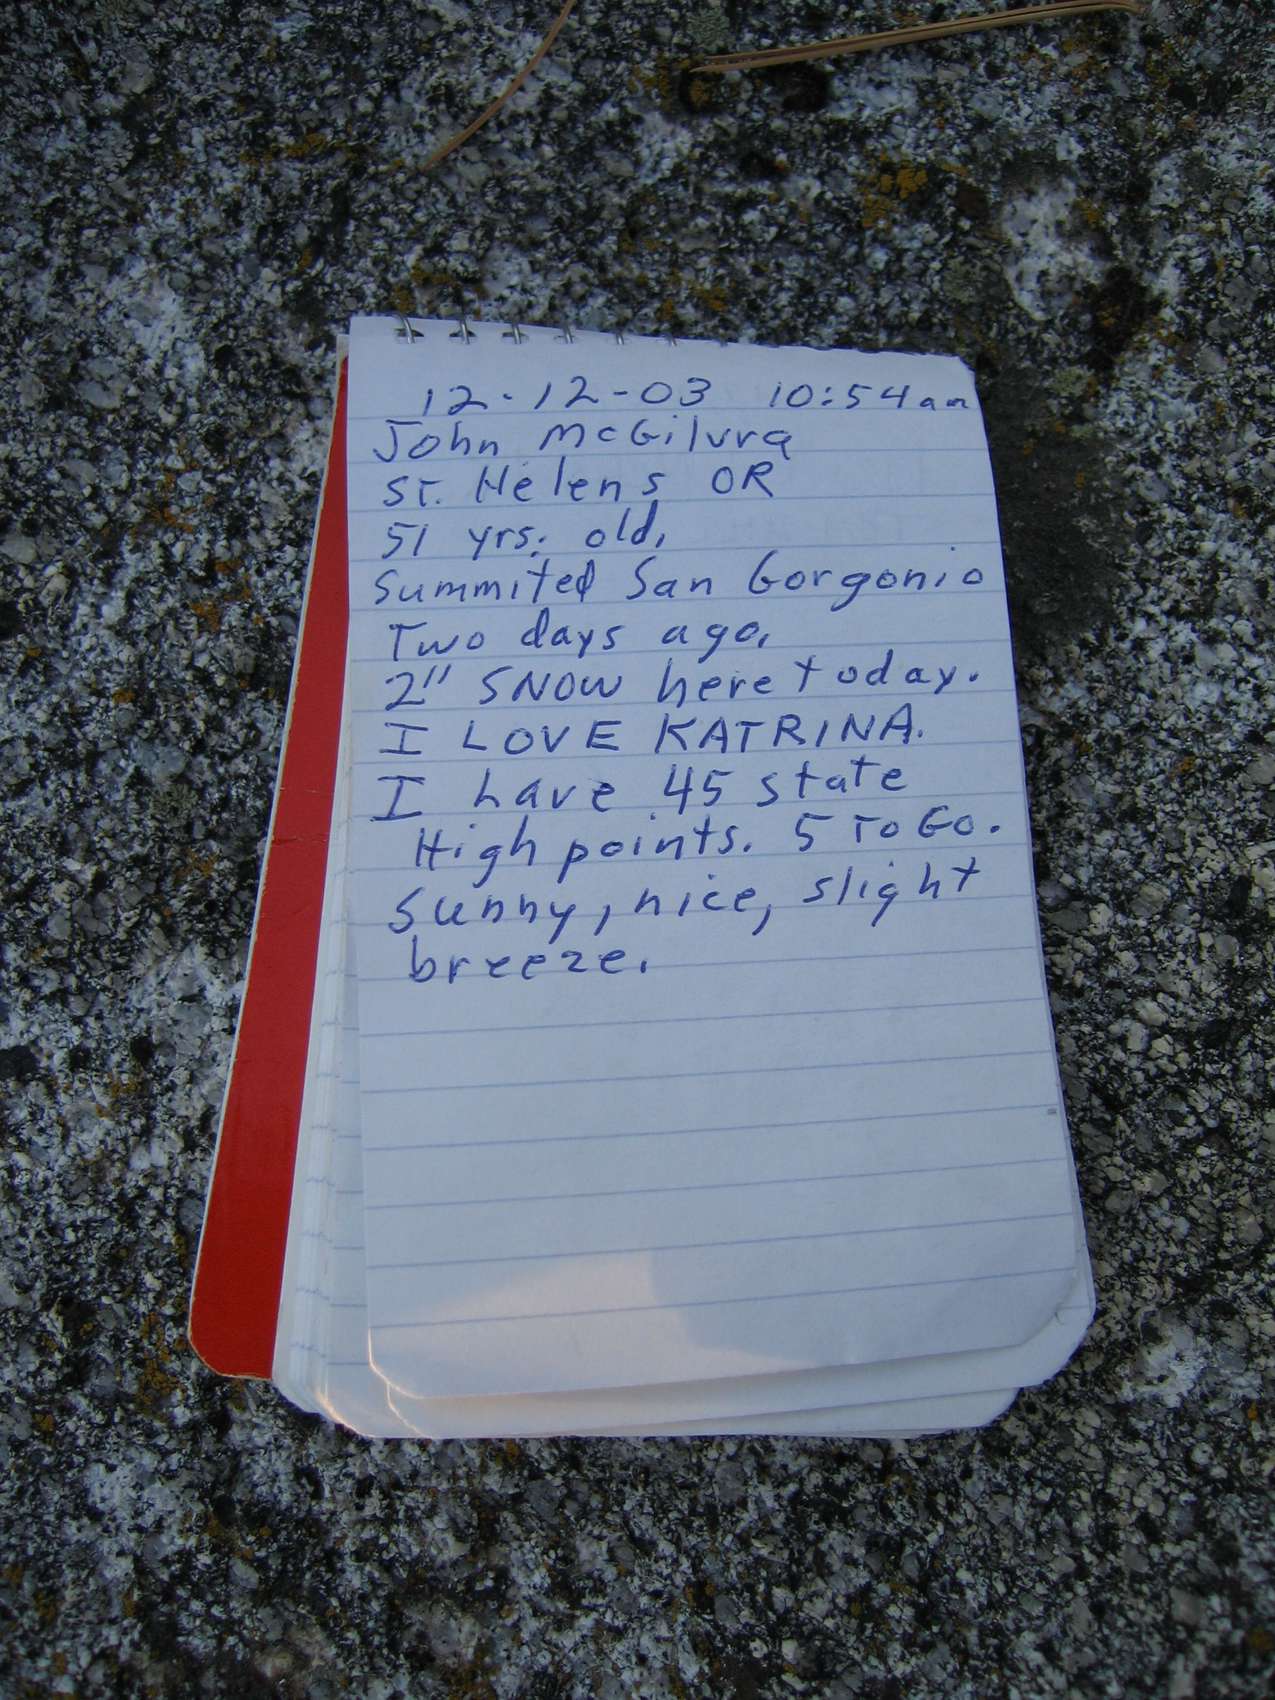 12-12-03 10:54am
John McGilvra
ST. Helens OR
51 yrs. old,
Summited San Gorgonio
Two days ago,
2" SNOW here today.
I LOVE KATRINA.
I have 45 state
High points. 5 To Go.
Sunny, nice, slight
breeze.